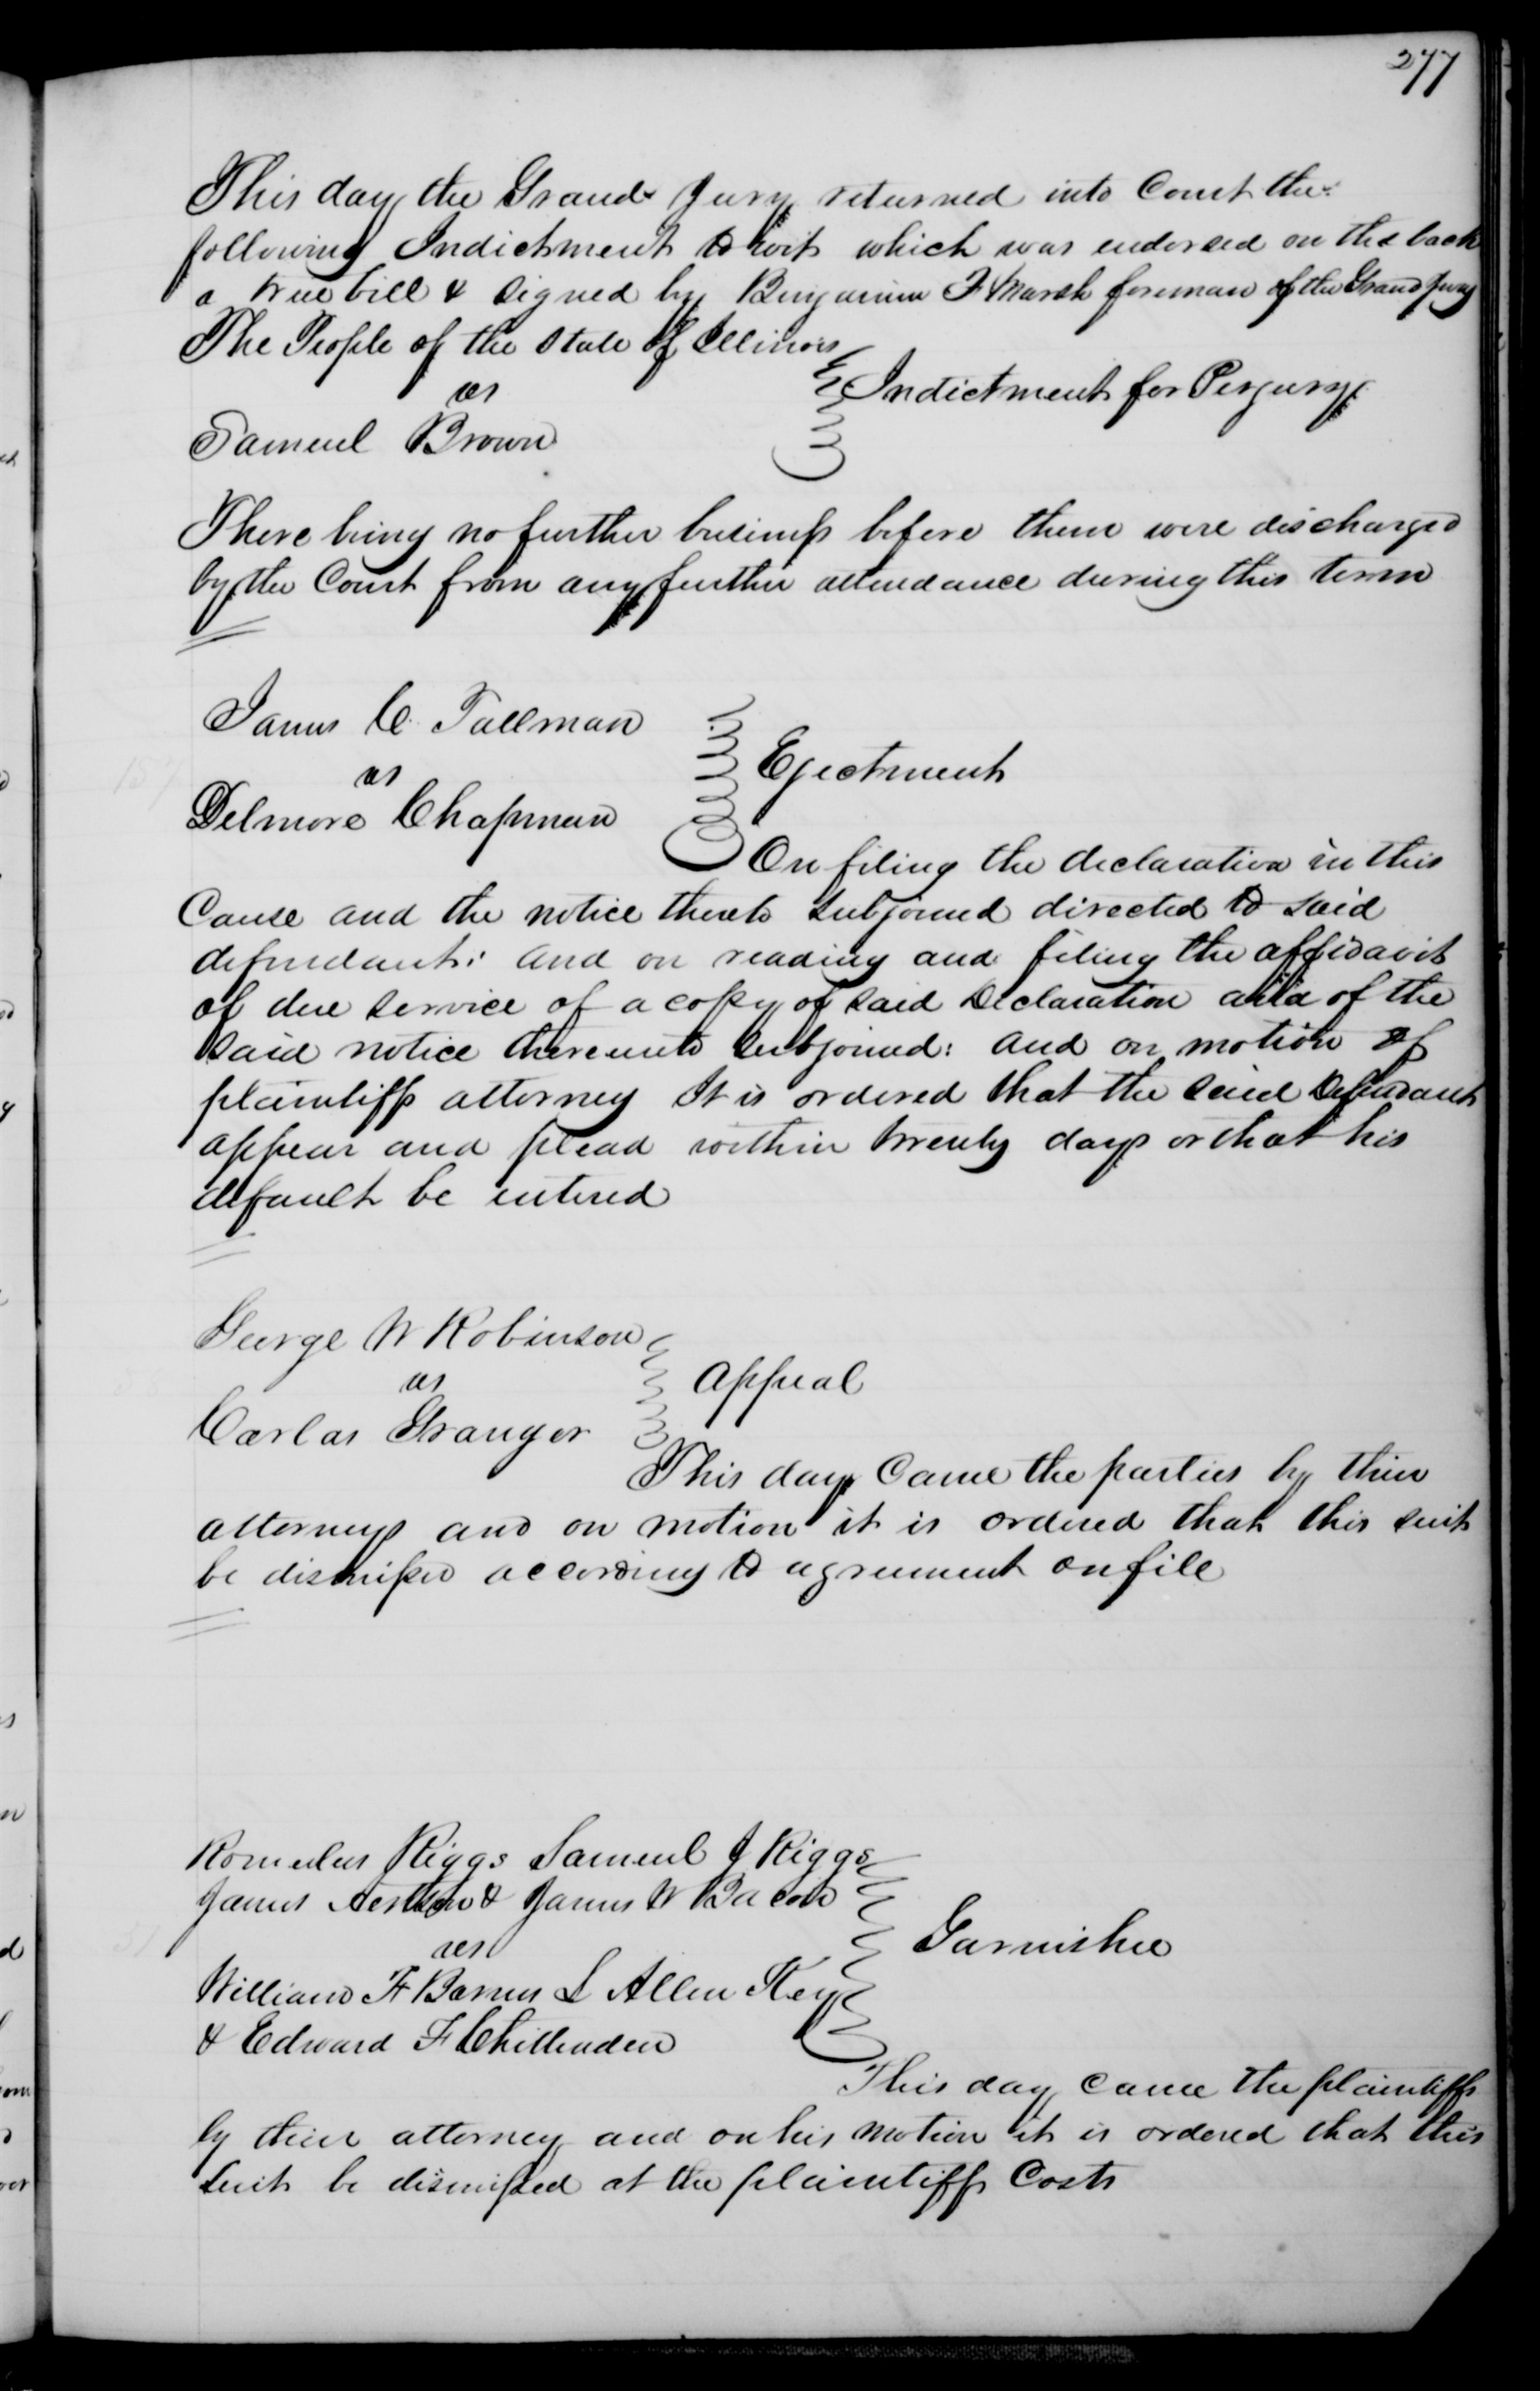 277
This day the Grand Jury returned into Court the
following Indictment to wit which was endorsed on the back
a true bill & signed by Benjamin F Marsh foreman of the Grand Jury
The People of the State of Illinois
vs
Indictment for Perjury
Samuel Brown
There being no further business before them were discharged
by the Court from any further attendance during this term
James C. Tallman
vs
Ejectment
Delmore Chapman
On filing the declaration in this
Cause and the notice thereto subjoined directed to said
defendant: and on reading and filing the affidavit
of due service of a copy of said Declaration and of the
said notice thereunto subjoined: and on motion of
plaintiffs attorney It is ordered that the said Defendant
appear and plead within twenty days or that his
default be entered
George W Robinson
vs
Appeal
Carlos Granger
This day Came the parties by their
attorneys and on motion it is ordered that this suit
be dismissed according to agreement on file
Romulus Riggs Samuel J Riggs
James & James W Bacon
vs
Garnishee
William H Barnes L Allen Key
& Edward F Chittenden
This day came the plaintiffs
by their attorney and on his motion it is ordered that this
suit be dismissed at the plaintiffs Costs